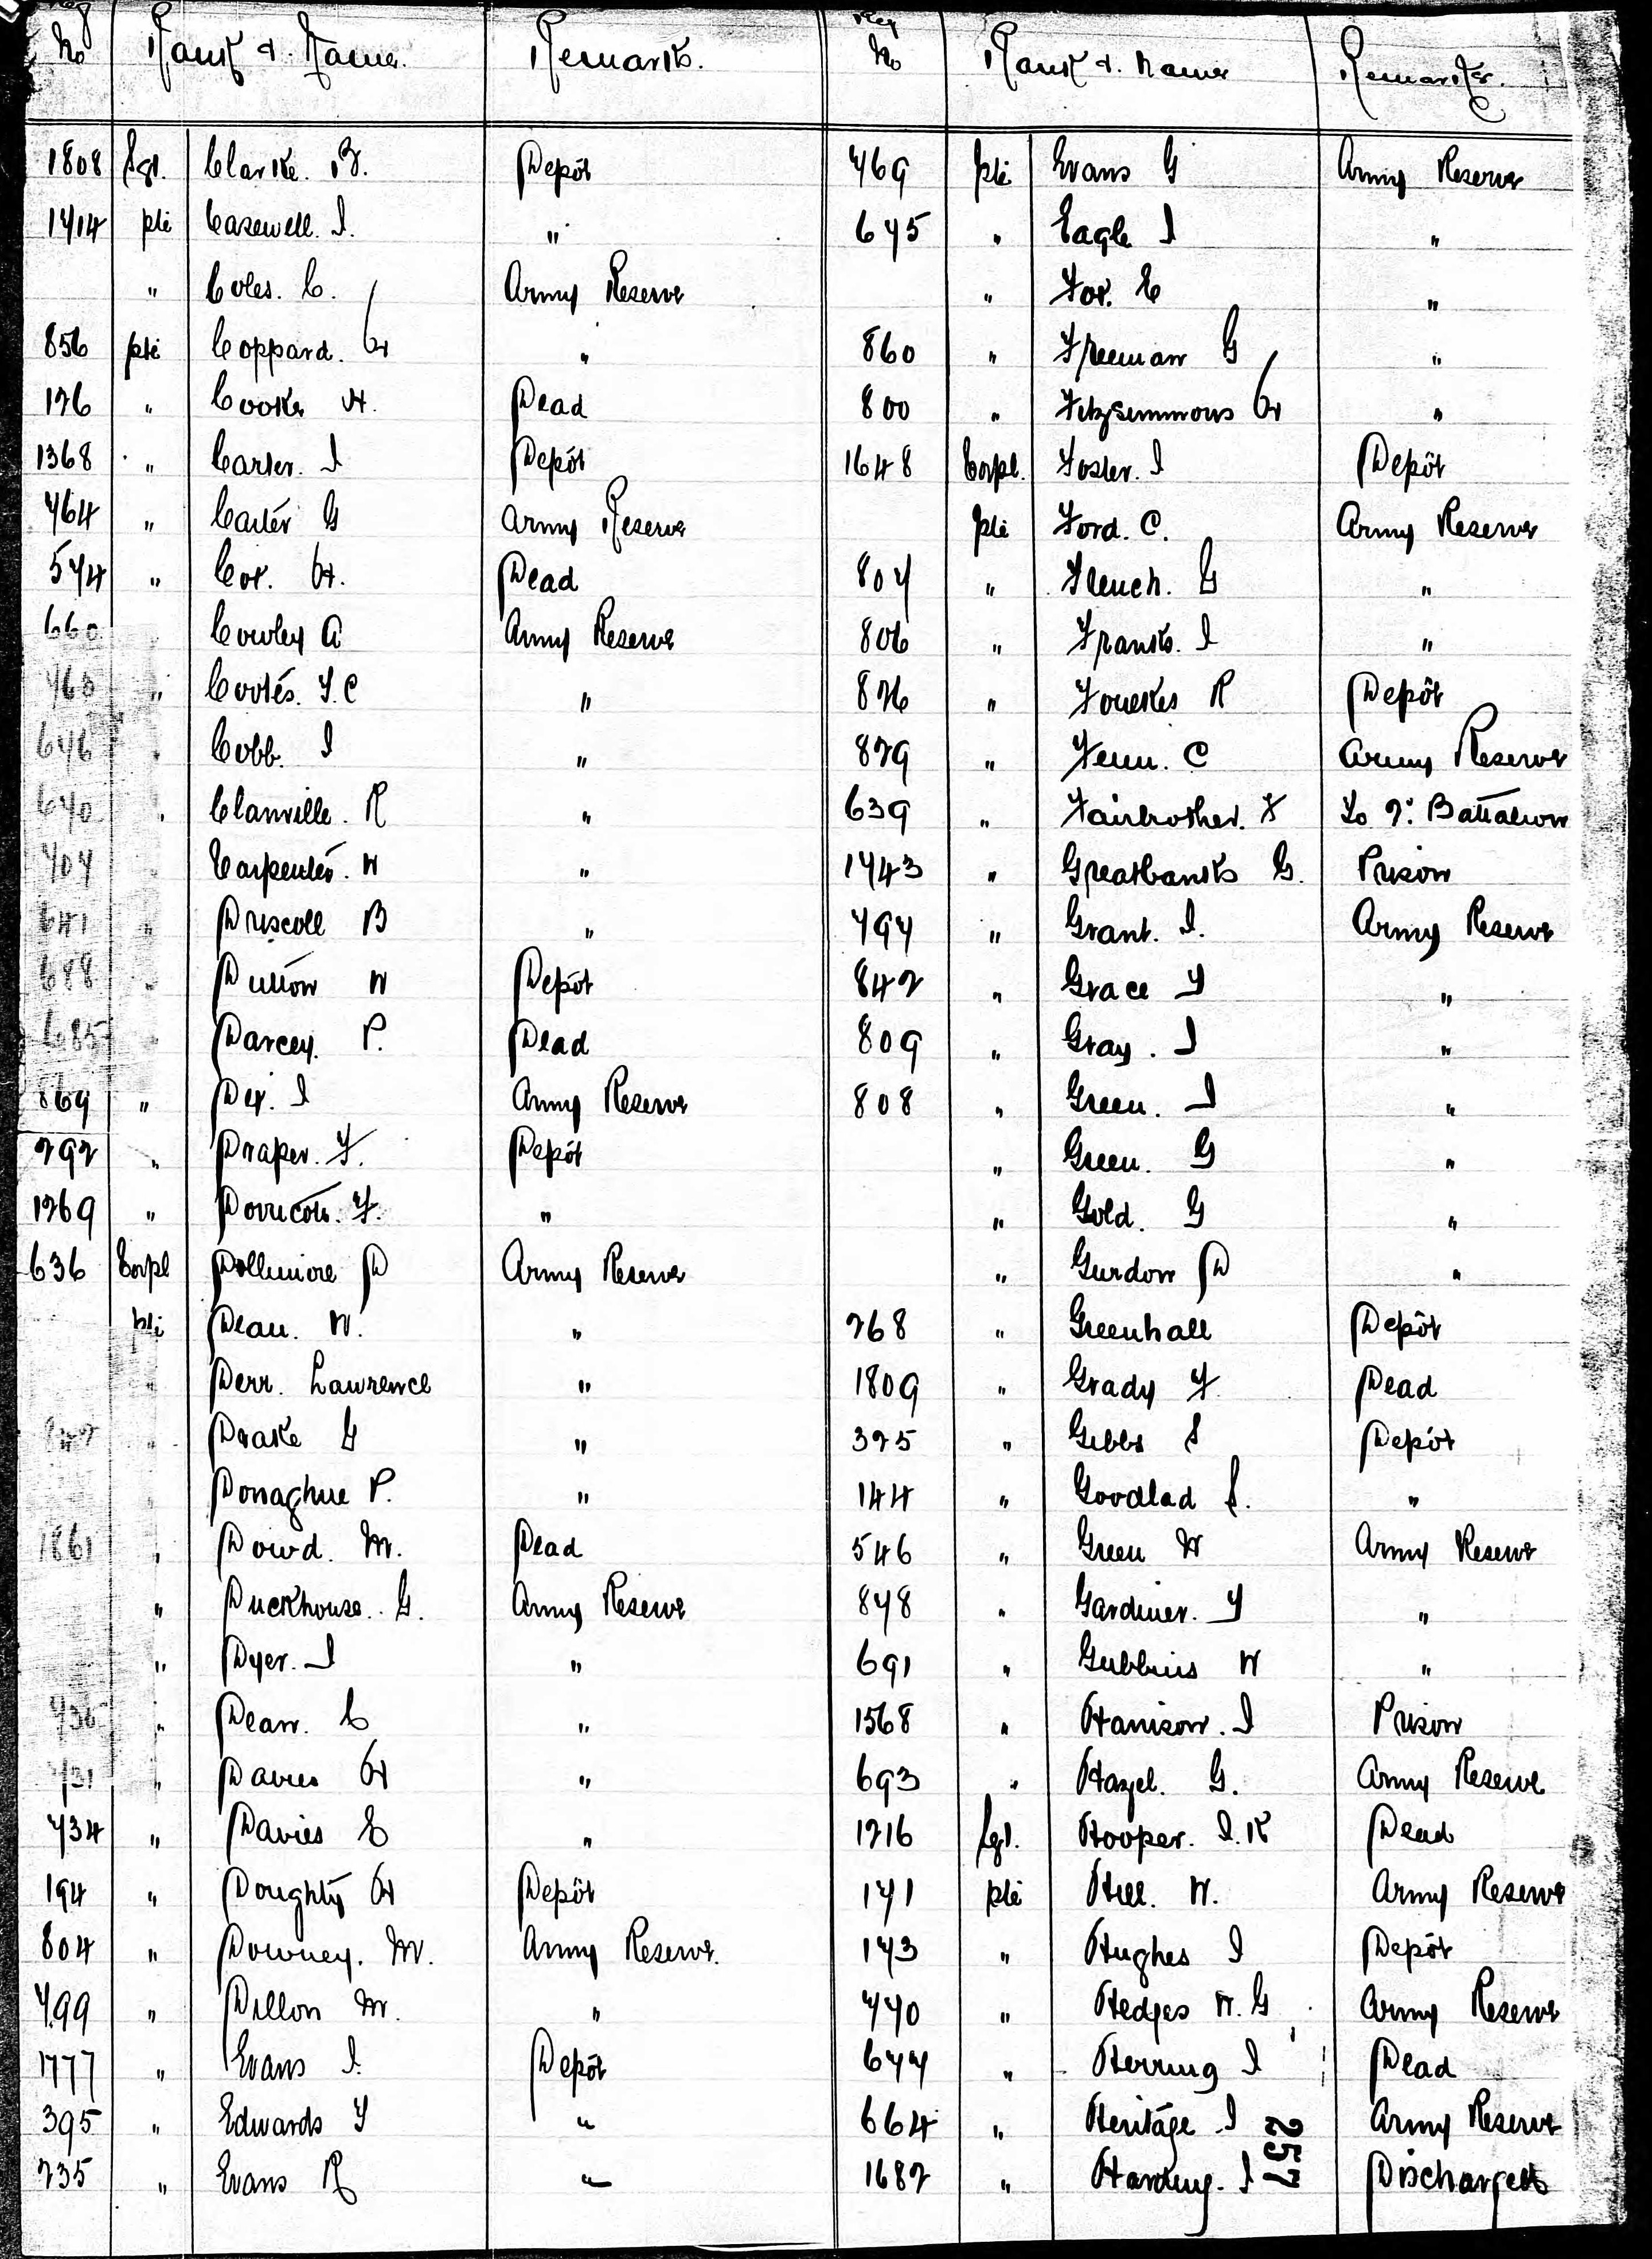 Reg No Rank & Name. Remarks. Reg No Rank & Name Remarks.
1808 Sgt. Clarke. B. Depôt 769 pte Evans G Army Reserve
1714 pte Casewell. J. " 675 " Eagle J "
" Coles. C. Army Reserve " Fox. E "
856 pte Coppard. H " 860 " Freeman G "
126 " Cooke H. Dead 800 " Fitzsimmons H "
1368 " Carter. J Depôt 1648 Corpl. Foster. J Depôt
764 " Carter G Army Reserve pte Ford. C. Army Reserve
574 " Cox. H. Dead 807 " French. G "
660 Cowley A Army Reserve 806 " Franks. J "
768 " Cootes. T. C " 826 " Foukes R Depôt
676 " Cobb. J " 829 " Fenn. C Army Reserve
670 " Clanville. R " 639 " Fairbrother. F To 2: Battalion
707 Carpenter. W " 1743 " Greatbanks G. Prison
641 " Driscoll B " 797 " Grant. J. Army Reserve
688 " Dutton W Depôt 842 " Grace T "
685 Darcey. P. Dead 809 " Gray. J "
869 " Dex. J Army Reserve 808 " Green. J "
292 " Draper. F. Depôt " Green. G "
1269 " Dorricott. F. " " Gold. G "
636 Corpl Dollimore D Army Reserve " Gurdon D "
pte Dean. W. " 268 " Greenhall Depôt
" Derr. Lawrence " 1809 " Grady F. Dead
" Drake G " 325 " Gibbs S Depôt
" Donaghue P. " 144 " Goodlad S. "
1861 " Dowd. M. Dead 546 " Green W Army Reserve
" Duckhouse. G. Army Reserve 878 " Gardiner. T "
" Dyer. J " 691 " Gubbins W "
736 " Dean. C " 1568 " Harrison. J Prison
731 " Davies H " 693 " Hazel. G. Army Reserve
734 " Davies E " 1216 Sgt. Hooper. J. K Dead
194 " Doughty H Depôt 171 pte Hill. W. Army Reserve
804 " Downey. M. Army Reserve. 173 " Hughes J Depôt
799 " Dillon M. " 770 " Hedges W. G Army Reserve
1777 " Evans J. Depôt 677 " Herring J Dead
395 " Edwards T " 664 " Heritage J Army Reserve
235 " Evans R " 1682 " Harding. J Discharged
257